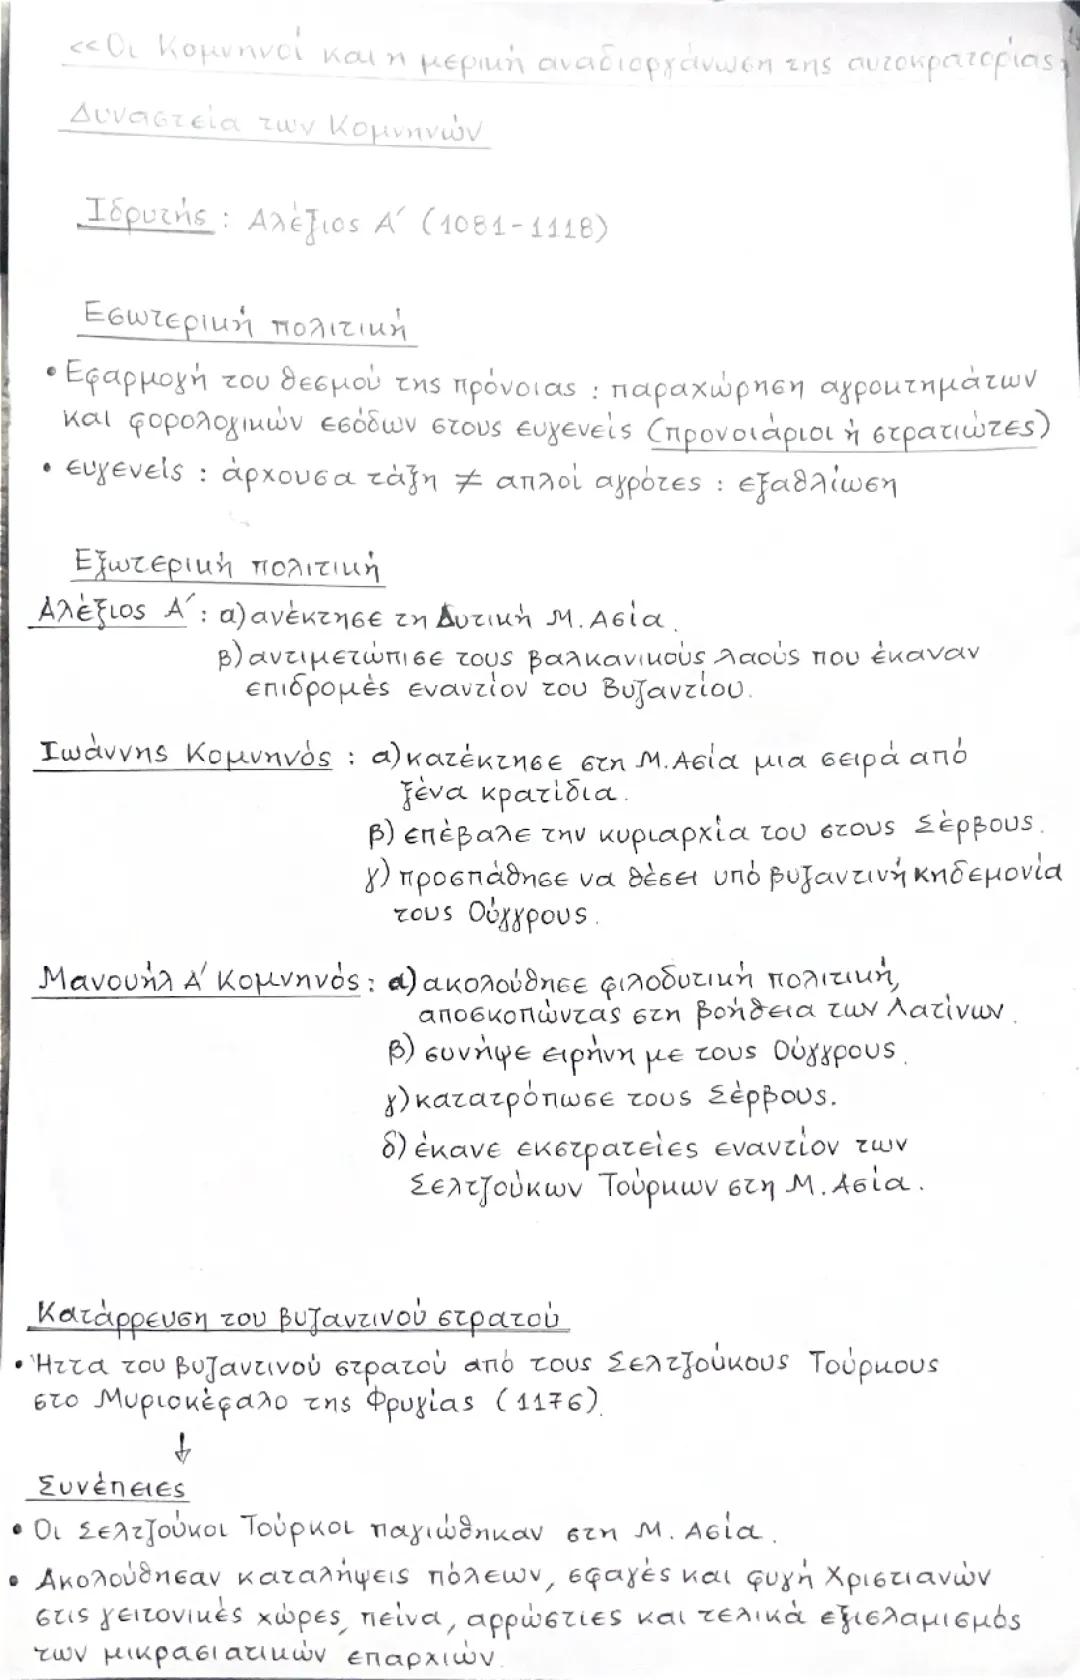 <<Οι Κομνηνοί και η μερική αναδιοργάνωση της αυτοκρατορίας>>
Δυναστεία των Κομνηνών
Ιδρυτής : Αλέξιος Α΄ (1081-1118)
Εσωτερική πολιτική
• Εφαρμογή του θεσμού της πρόνοιας : παραχώρηση αγροκτημάτων
και φορολογικών εσόδων στους ευγενείς (προνοιάριοι ή στρατιώτες)
• ευγενείς : άρχουσα τάξη ≠ απλοί αγρότες : εξαθλίωση
Εξωτερική πολιτική
Αλέξιος Α΄ : α) ανέκτησε τη Δυτική Μ. Ασία.
β) αντιμετώπισε τους βαλκανικούς λαούς που έκαναν
επιδρομές εναντίον του Βυζαντίου.
Ιωάννης Κομνηνός : α) κατέκτησε στη Μ. Ασία μια σειρά από
ξένα κρατίδια.
β) επέβαλε την κυριαρχία του στους Σέρβους.
γ) προσπάθησε να θέσει υπό βυζαντινή κηδεμονία
τους Ούγγρους.
Μανουήλ Α΄ Κομνηνός : α) ακολούθησε φιλοδυτική πολιτική,
αποσκοπώντας στη βοήθεια των Λατίνων.
β) συνήψε ειρήνη με τους Ούγγρους.
γ) κατατρόπωσε τους Σέρβους.
δ) έκανε εκστρατείες εναντίον των
Σελτζούκων Τούρκων στη Μ. Ασία.
Κατάρρευση του βυζαντινού στρατού
• Ήττα του βυζαντινού στρατού από τους Σελτζούκους Τούρκους
στο Μυριοκέφαλο της Φρυγίας (1176).
↓
Συνέπειες
• Οι Σελτζούκοι Τούρκοι παγιώθηκαν στη Μ. Ασία.
• Ακολούθησαν καταλήψεις πόλεων, σφαγές και φυγή Χριστιανών
στις γειτονικές χώρες, πείνα, αρρώστιες και τελικά εξισλαμισμός
των μικρασιατικών επαρχιών.